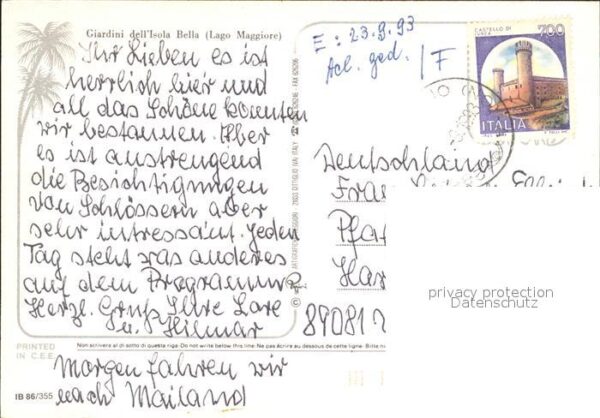 Giardini dell'Isola Bella (Lago Maggiore)
Ihr Lieben es ist
herrlich hier und
all das Schöne konnten
wir bestaunen. Aber
es ist anstrengend
die Besichtigungen
von Schlössern aber
sehr intressant. Jeden
Tag steht was anderes
auf dem Programm
Herzl. Gruß Ihre Lore
u. Hilmar
Morgen fahren wir
nach Mailand
E: 23.9.93
/F
CASTELLO DI
IVREA
700
ITALIA
Deutschland
Frau
privacy protection
Datenschutz
Non scrivere al disotto di questa riga · Do not write below this line · Ne pas écrire au dessous de cette ligne
PRINTED
IN C.E.E.
IB 86/355